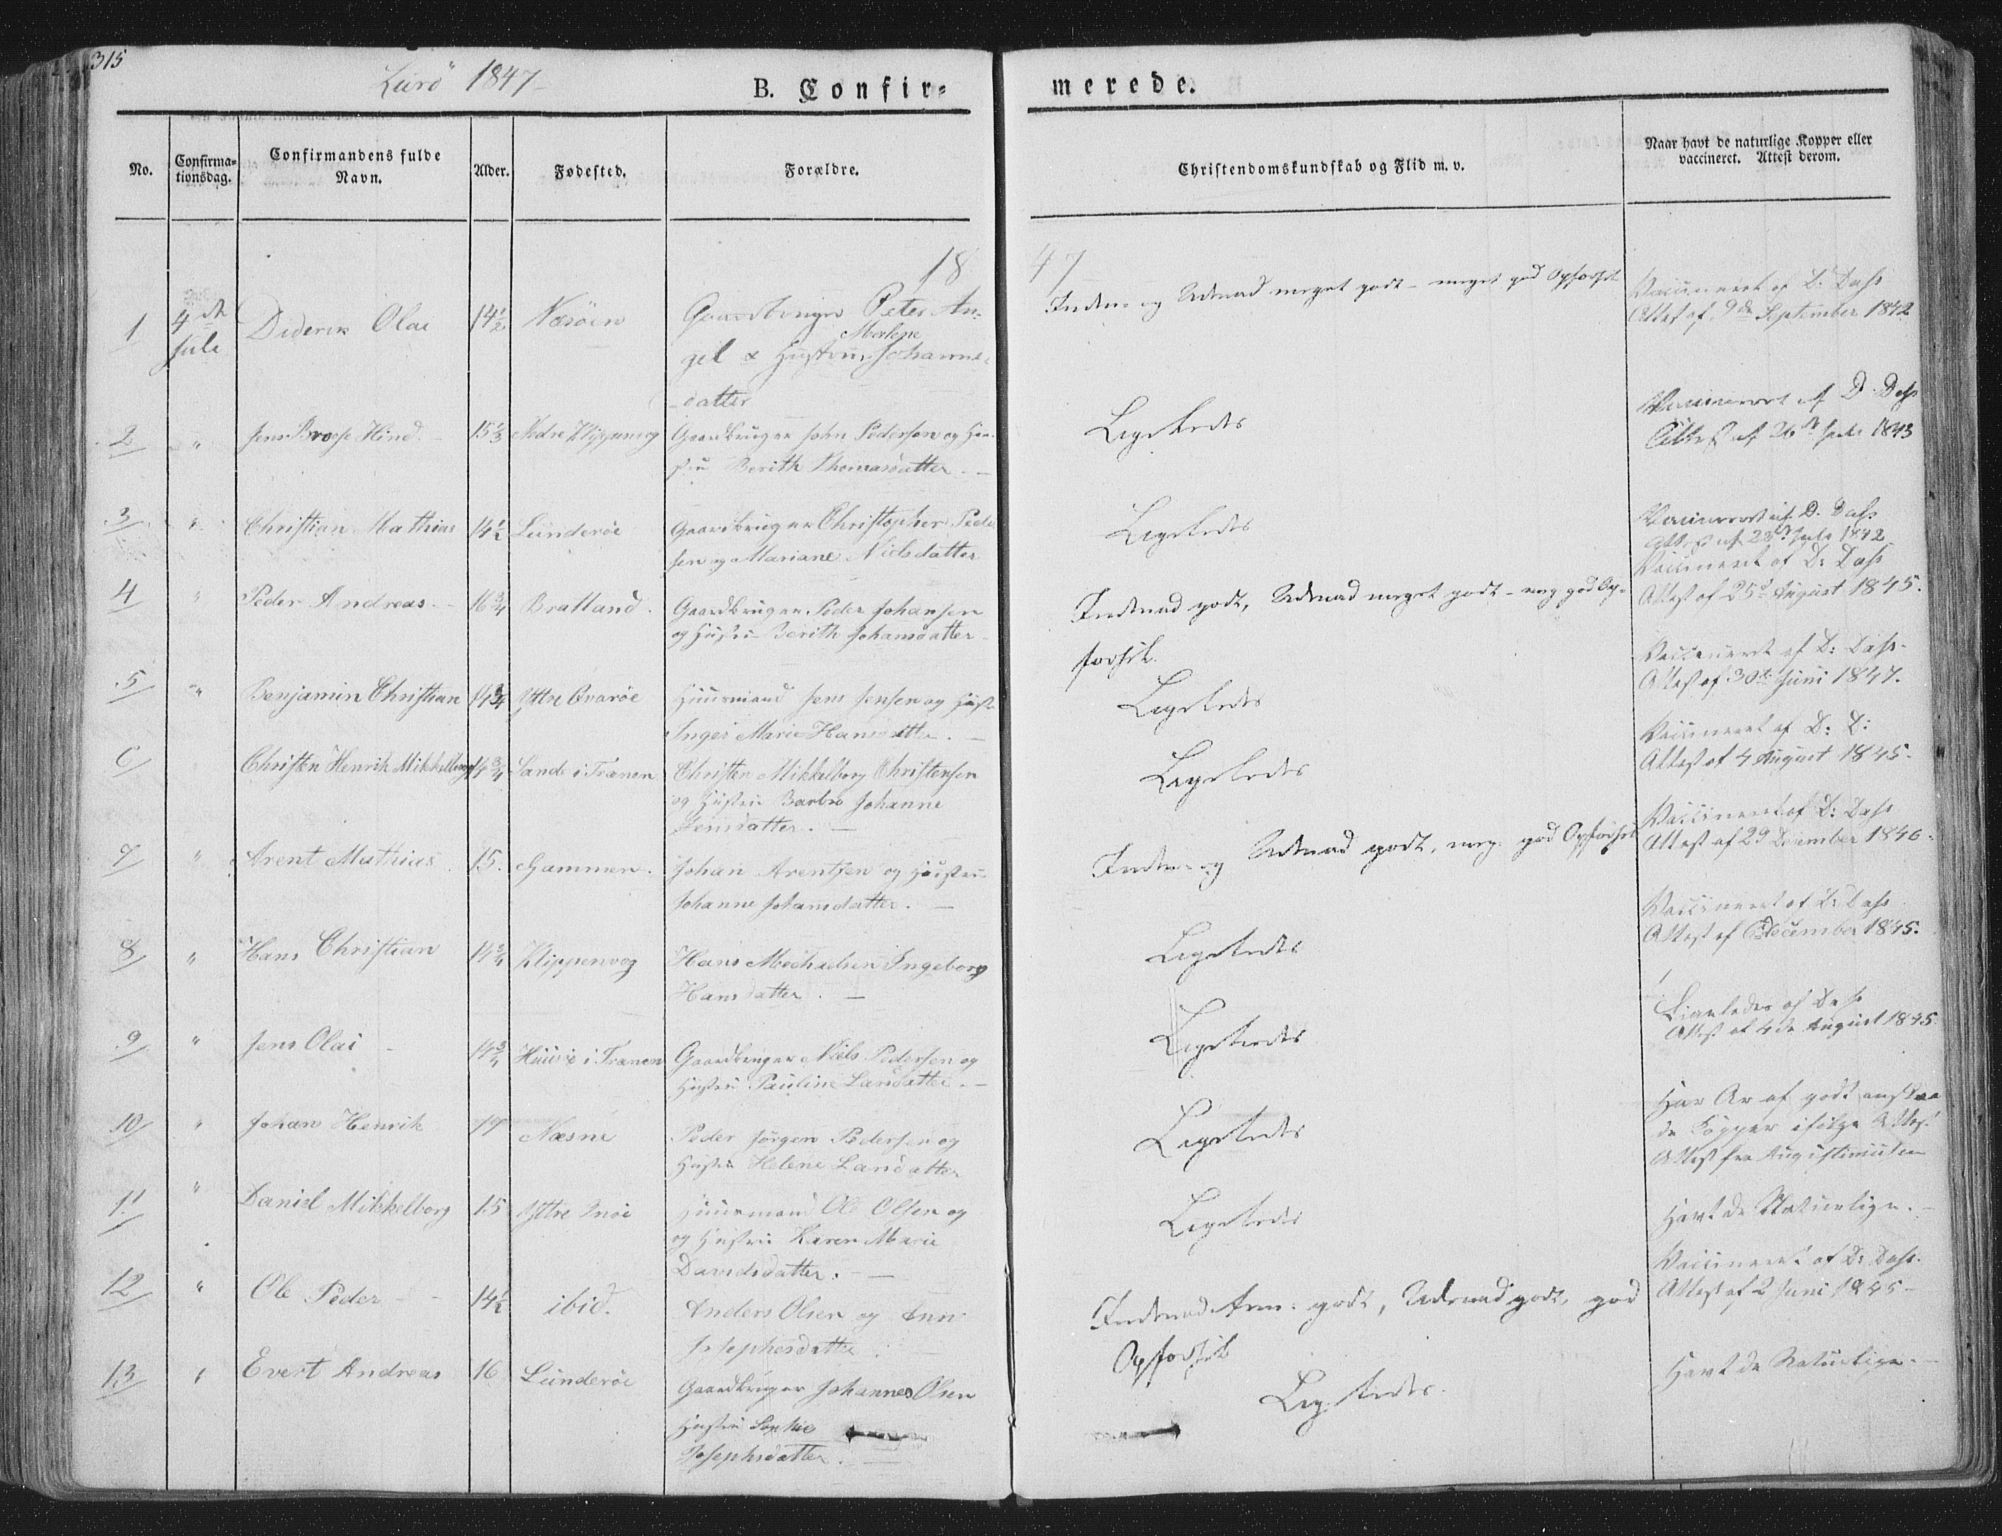 315
Lurö 1847
B. Confir-
merede.
No.
Confirma-
tionsdag.
Confirmandens fulde
Navn.
Alder.
Fødested.
Forældre.
Christendomskundskab og Flid m. v.
Naar havt de naturlige Kopper eller
vaccineret. Attest derom.
18
47
1 4de Diderik Olai 14½ Næsöen Gaardbruger Peter An-
Juli gel & Hustru Malene Johanne-
datter
Inden- og Udenad meget godt - meget god Opførsel
Vaccineret af D: Dass
Attest af 9de September 1842
2 " Jens Brose Hind. 15⅓ Nedre Klippenvog Gaardbruger John Pedersen og Hu-
stru Berith Thomasdatter. —
Ligeledes
Vaccineret af D. Dass
Attest af 26de Juli 1843
3 " Christian Mathias 14½ Lunderöe Gaardbruger Christopher Peder-
sen og Mariane Nielsdatter
Ligeledes
Vaccineret af D. Dass
Attest af 23de Juli 1842
4 " Peder Andreas. 16¾ Bratland. Gaardbruger Peder Johansen
og Hustru Berith Johansdatter
Indenad godt, Udenad meget godt - meg. god Op-
førsel.
Vaccineret af D: Dass
Attest af 25de August 1845.
5 " Benjamin Christian 14¾ Yttre Qvaröe Huusmand Jens Jensen og Hust.
Inger Marie Hansdatter. —
Ligeledes
Vaccineret af D: Dass.
Attest af 30te Juni 1847.
6 Christen Henrik Mikkelborg 14¾ Sandö i Trænen Christen Mikkelborg Christensen
og Hustru Barbro Johanne
Jensdatter. —
Ligeledes
Vaccineret af D: D:
Attest af 4 August 1845.
7 " Arent Mathias 15. Gammen. Johan Arentsen og Hustru
Johanne Johansdatter. —
Inden- og Udenad godt, meg. god Opførsel
Vaccineret af D: Dass
Attest af 29 December 1846.
8 " Hans Christian 14¾ Klippenvog Hans Michaelsen Ingeborg
Hansdatter. —
Ligeledes
Vaccineret af D: Dass
Attest af December 1845.
9 " Jens Olai 14¾ Huusöe i Trænen Gaardbruger Niels Pedersen og
Hustru Pauline Larsdatter. —
Ligeledes
Ligeledes af Dass
Attest af 4de August 1845
10 " Johan Henrik 19 Næsne Peder Jörgen Pedersen og
Hustru Helene Larsdatter
Ligeledes
Har Ar af godt
de Kopper ifölge
Attest fra
11 " Daniel Mikkelborg 15 Yttre Huusmand Ole Olsen og
og Hustru Karen Marie
Davidsdatter. —
Ligeledes
Havt de Naturlige. —
12 " Ole Peder 14½ ibid. Anders Olsen og Ann
Josephsdatter. —
Indenad godt, Udenad godt, god
Opførsel
Vaccineret af D: Dass.
Attest af 2 Juni 1845
13 " Evert Andreas 16 Lunderöe Gaardbruger Johannes Olsen
Hustru Sophie
Josephsdatter. —
Ligeledes.
Havt de Naturlige. —